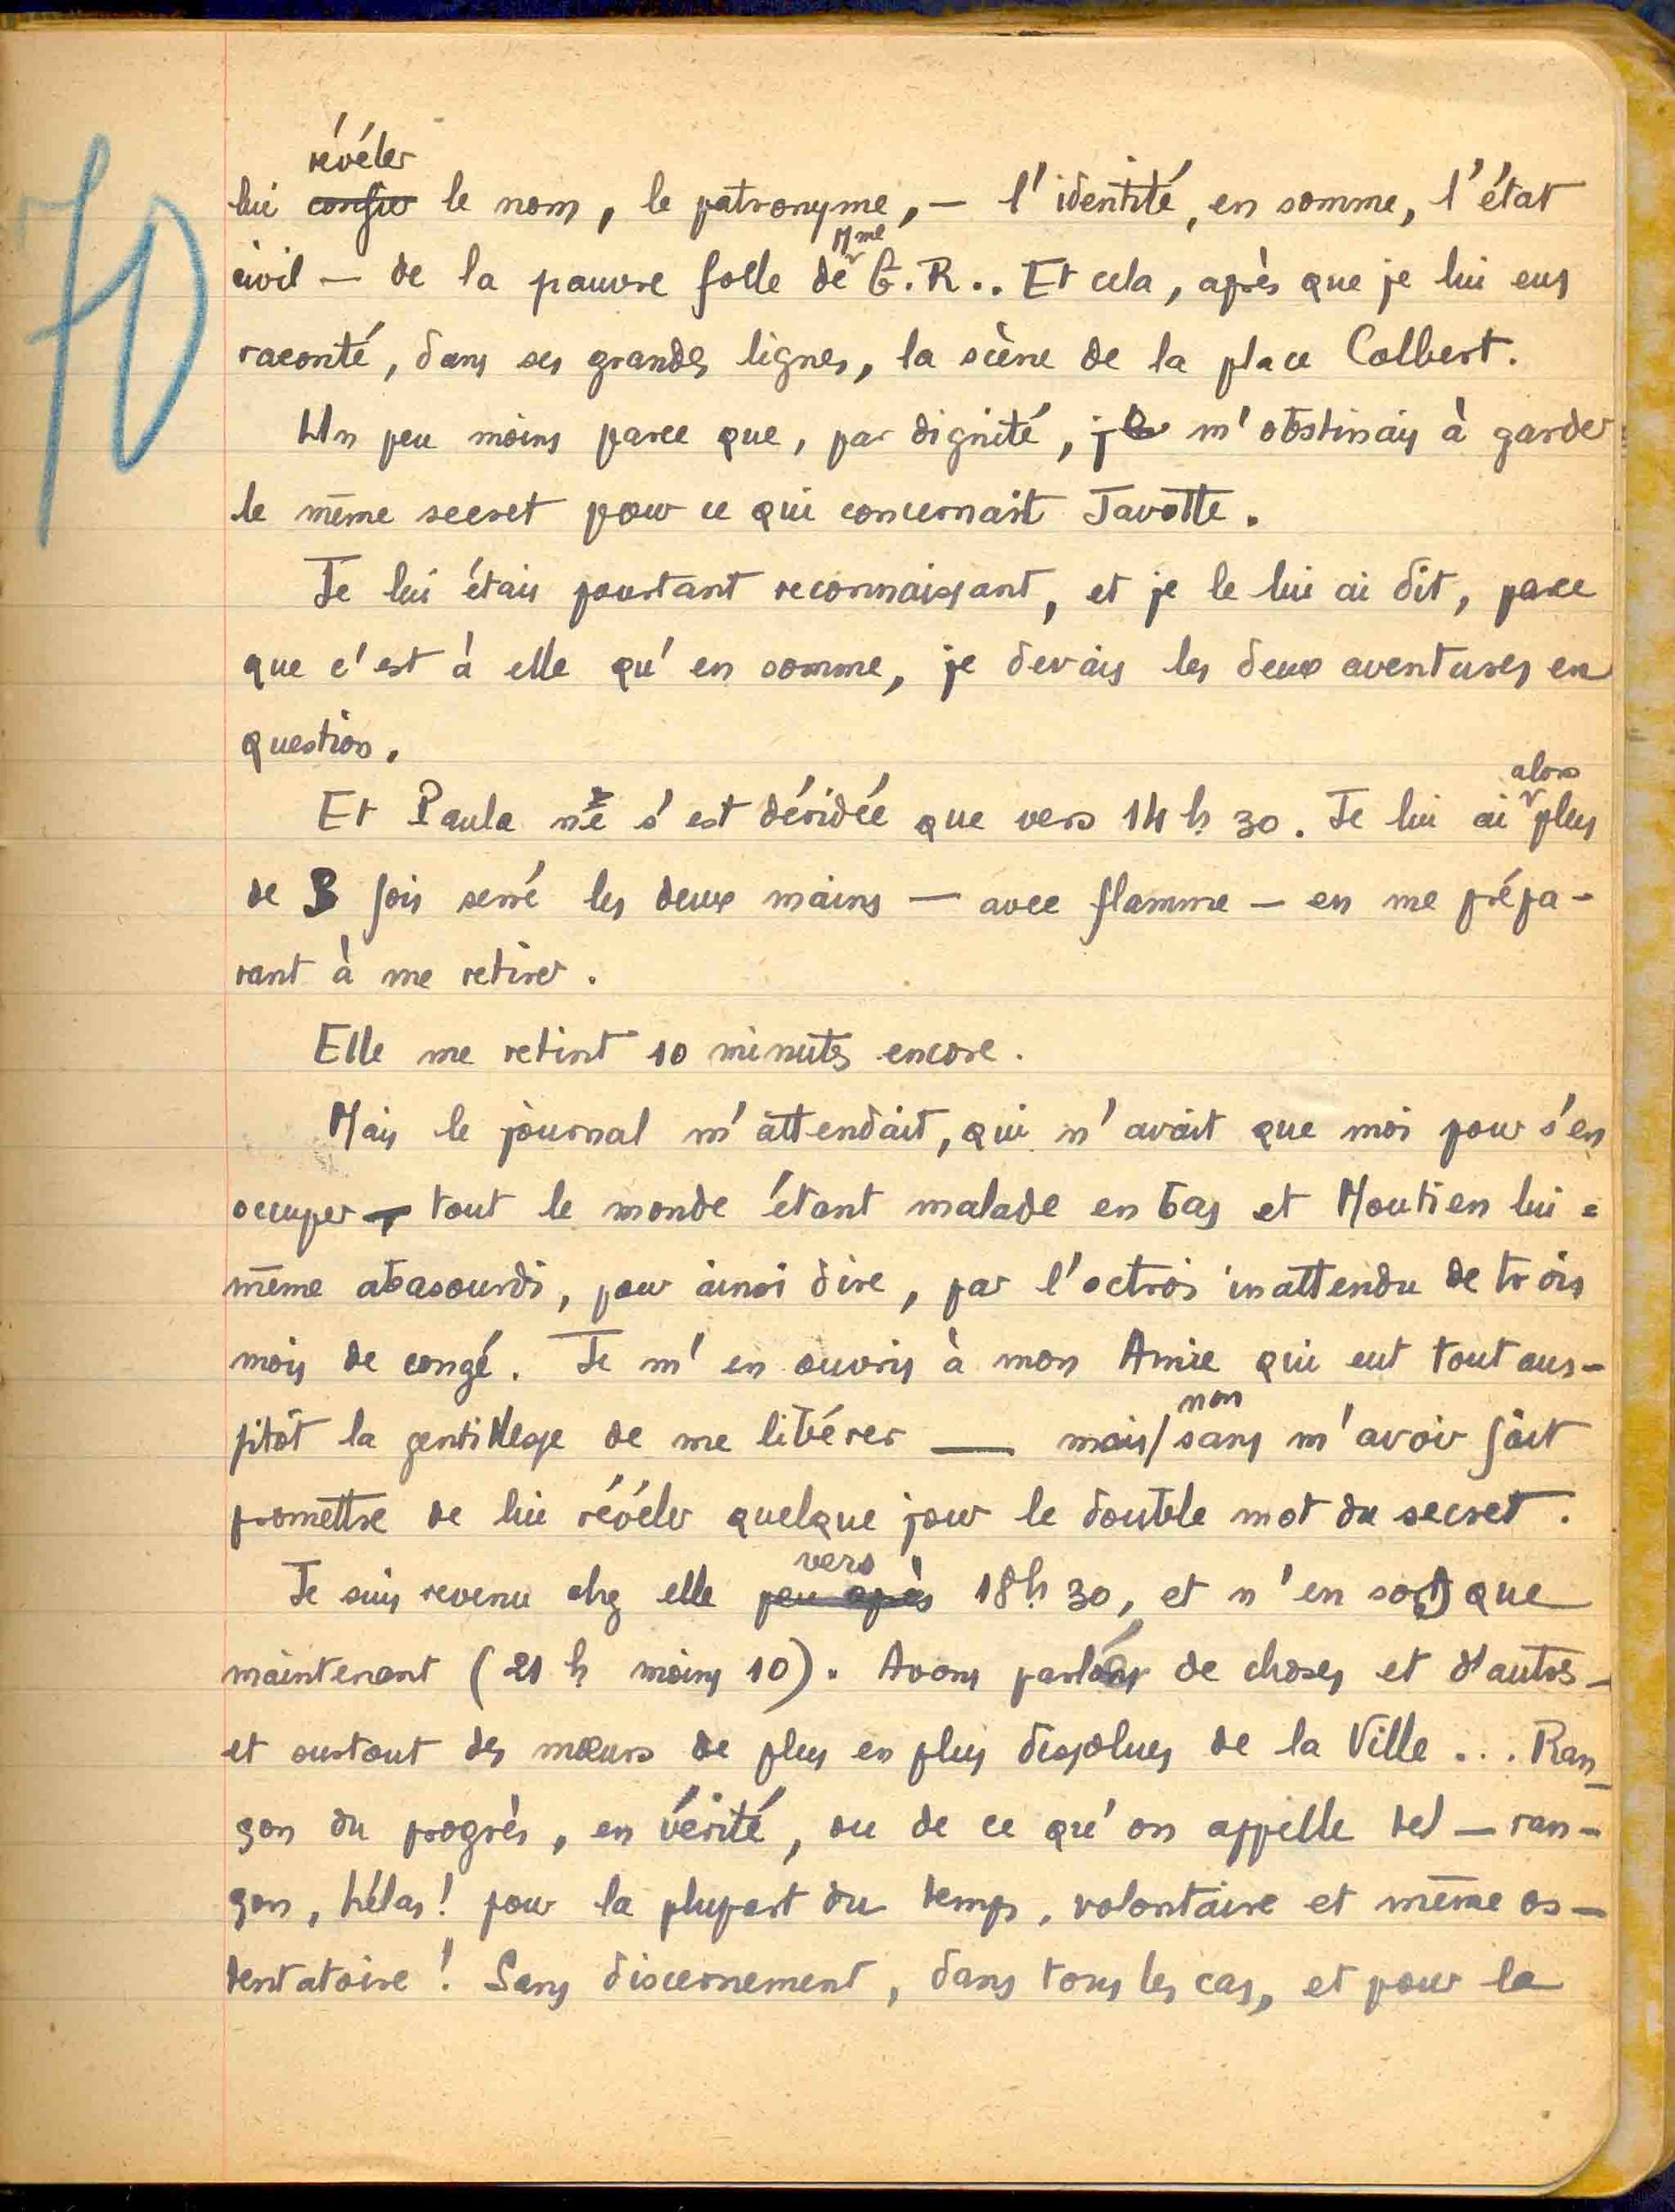 70
révéler
lui confier le nom, le patronyme, — l'identité, en somme, l'état
Mme
civil — de la pauvre folle de G. R.. Et cela, après que je lui eus
raconté, dans ses grandes lignes, la scène de la place Colbert.
Un peu moins parce que, par dignité, je m'obstinais à garder
le même secret pour ce qui concernait Javotte.
Je lui étais pourtant reconnaissant, et je le lui ai dit, parce
que c'est à elle qu'en somme, je devais les deux aventures en
question.
alors
Et Paula ne s'est déridée que vers 14 h 30. Je lui ai plus
de 3 fois serré les deux mains — avec flamme — en me prépa-
rant à me retirer.
Elle me retint 10 minutes encore.
Mais le journal m'attendait, qui n'avait que moi pour s'en
occuper, tout le monde étant malade en bas et Moutien lui-
même abasourdi, pour ainsi dire, par l'octroi inattendu de trois
mois de congé. Je m'en ouvris à mon Amie qui eut tout aus-
non
sitôt la gentillesse de me libérer — mais/ sans m'avoir fait
promettre de lui révéler quelque jour le double mot du secret.
vers
Je suis revenu chez elle peu après 18 h 30, et n'en sors que
maintenant (21 h moins 10). Avons parlé de choses et d'autres —
et surtout des mœurs de plus en plus dissolues de la Ville ... Ran-
çon du progrès, en vérité, ou de ce qu'on appelle tel — ran-
çon, hélas! pour la plupart du temps, volontaire et même os-
tentatoire! Sans discernement, dans tous les cas, et pour la